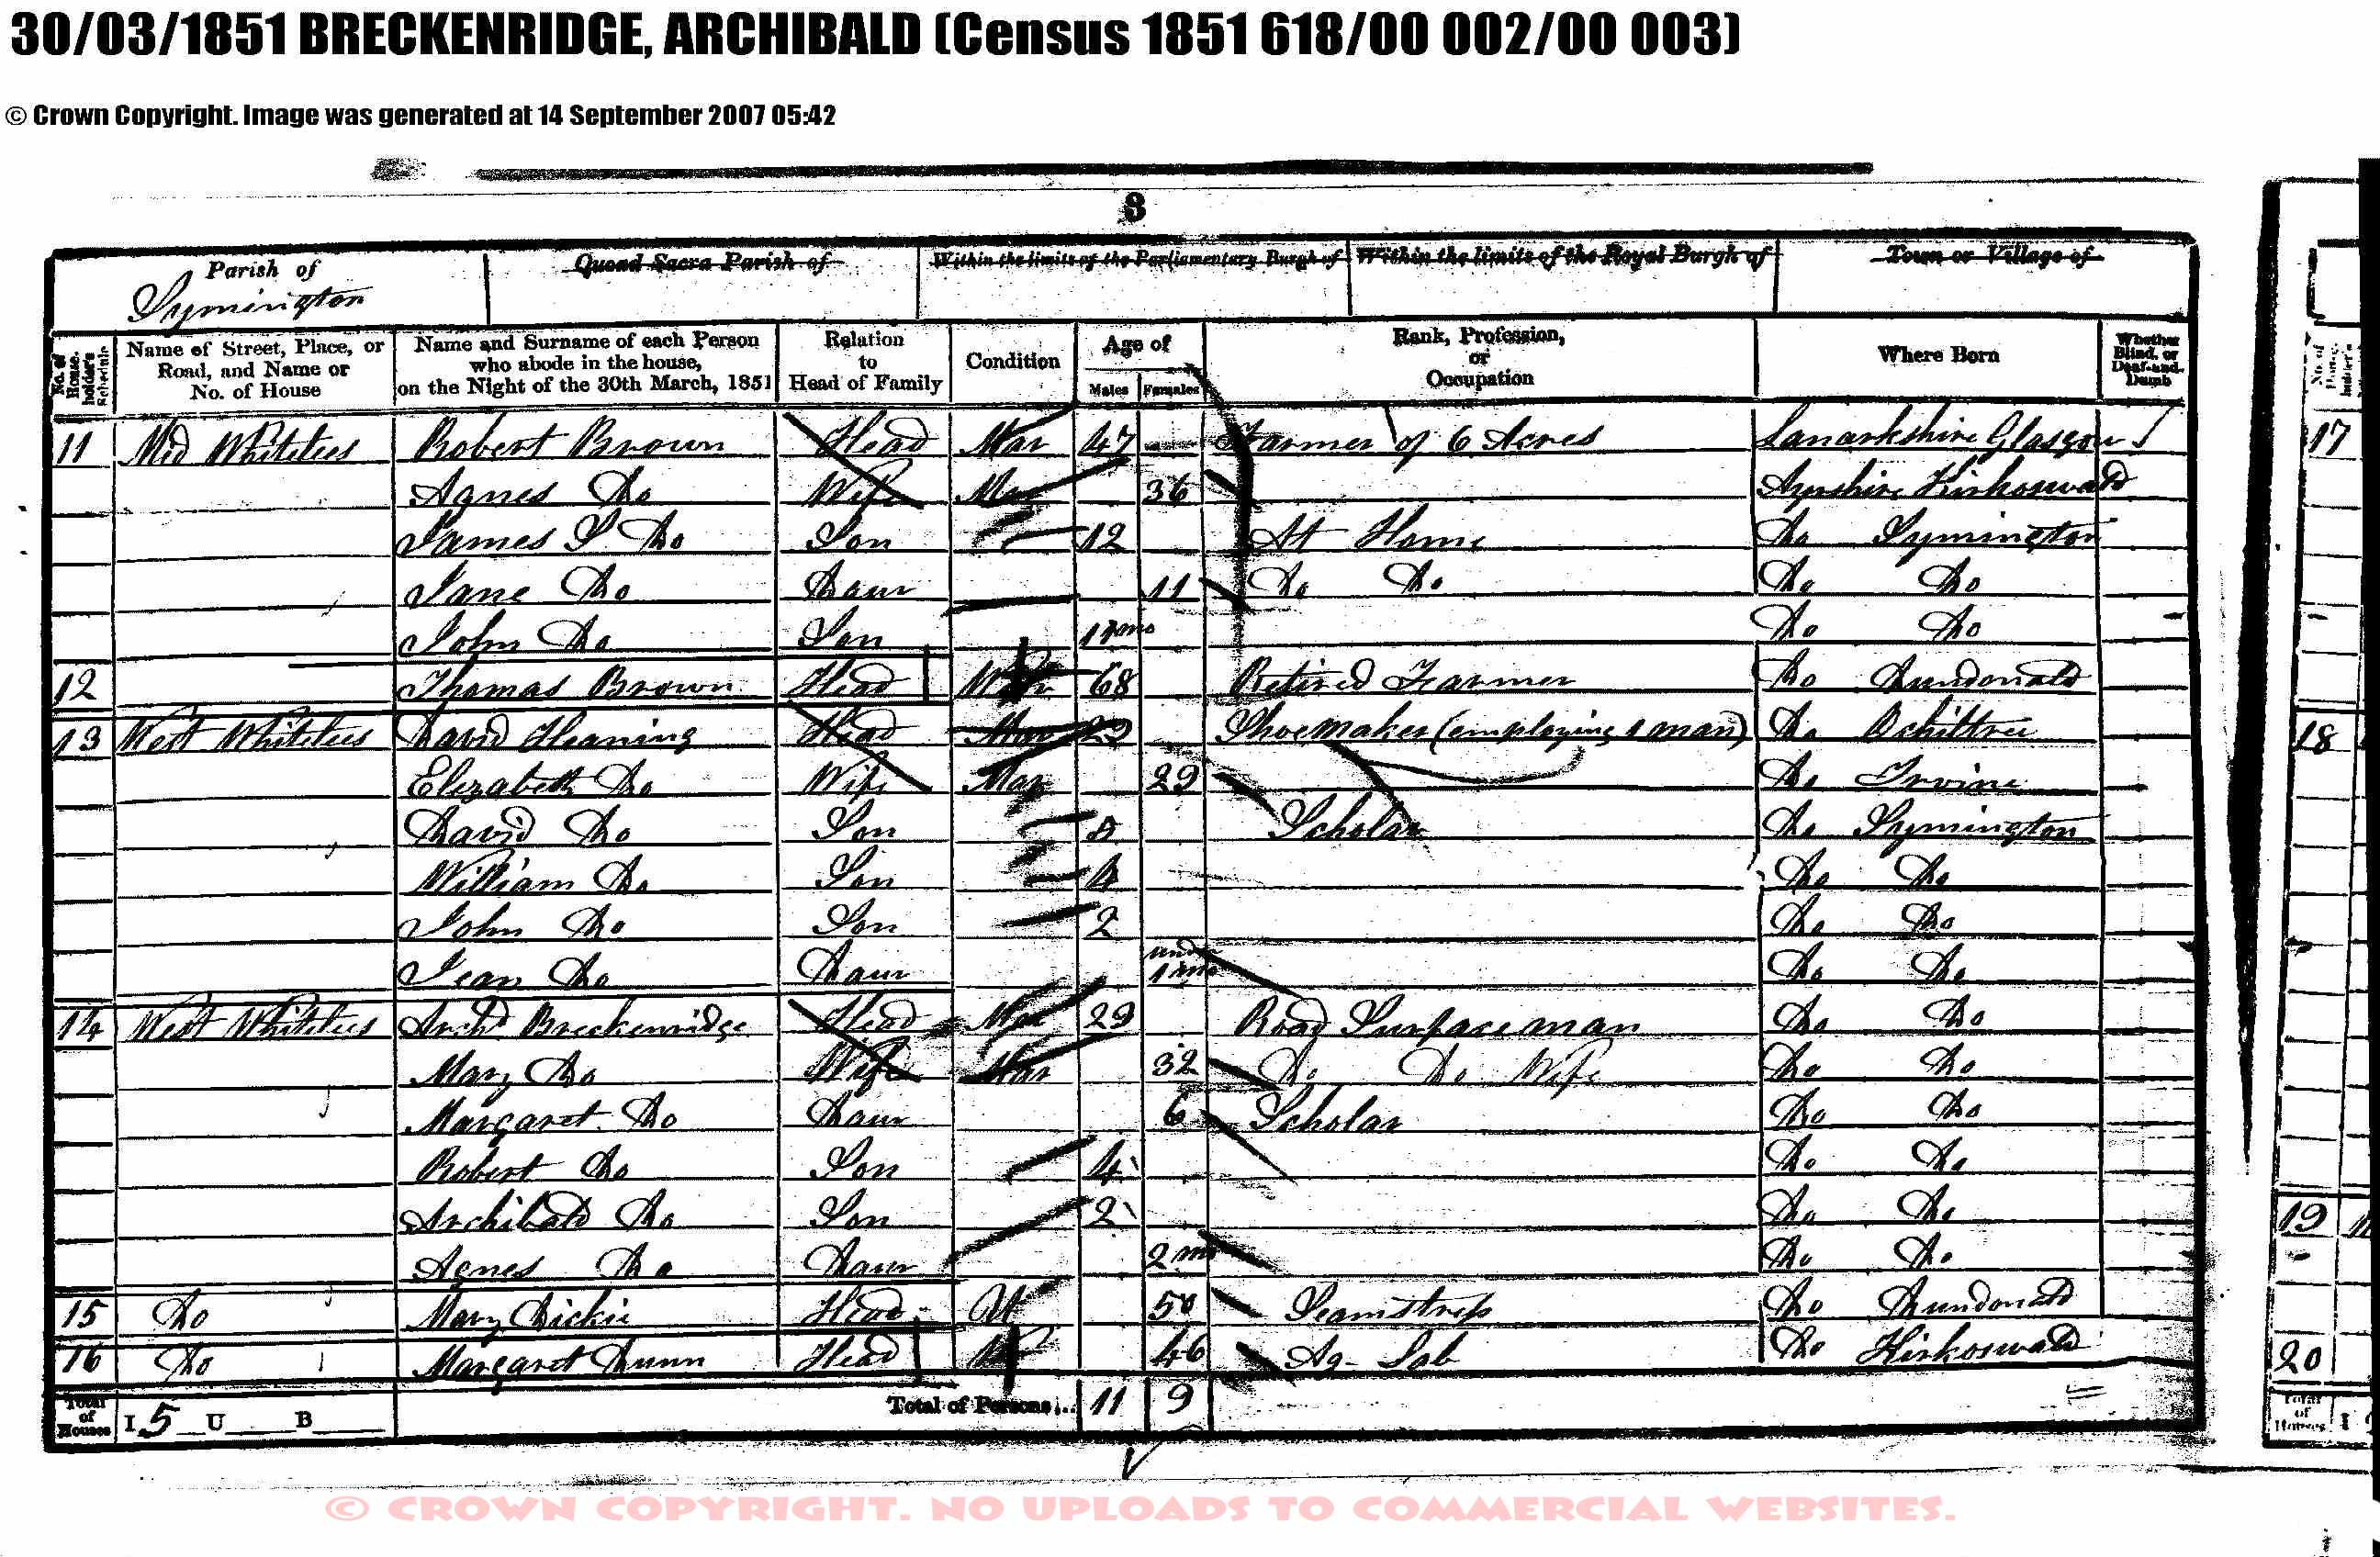 30/03/1851 BRECKENRIDGE, ARCHIBALD (Census 1851 618/00 002/00 003)
© Crown Copyright. Image was generated at 14 September 2007 05:42
3
Parish of Symington
Quoad Sacra Parish of
Within the limits of the Parliamentary Burgh of
Within the limits of the Royal Burgh of
Town or Village of
No. of House-holder's Schedule
Name of Street, Place, or Road, and Name or No. of House
Name and Surname of each Person who abode in the house, on the Night of the 30th March, 1851
Relation to Head of Family
Condition
Age of Males Females
Rank, Profession, or Occupation
Where Born
Whether Blind, or Deaf-and-Dumb
11 Mid Whitelees Robert Brown Head Mar 47 Farmer of 6 Acres Lanarkshire Glasgow
Agnes Do Wife Mar 36 Ayrshire Kirkoswald
James S Do Son 12 At Home Do Symington
Jane Do Daur 11 Do Do Do Do
John Do Son 11mo Do Do
12 Thomas Brown Head 68 Retired Farmer Do Dundonald
13 West Whitelees David Fleaning Head Mar 29 Shoemaker (employing 1 man) Do Ochiltree
Elizabeth Do Wife Mar 29 Do Irvine
David Do Son Scholar Do Symington
William Do Son 4 Do Do
John Do Son 2 Do Do
Jean Do Daur und 1 mo Do Do
14 West Whitelees Archd Breckenridge Head Mar 29 Road Surfaceman Do Do
Mary Do Wife Mar 32 Do Do Wife Do Do
Margaret Do Daur 6 Scholar Do Do
Robert Do Son 4 Do Do
Archibald Do Son 2 Do Do
Agnes Do Daur 2mo Do Do
15 Do Mary Dickie Head U 50 Seamstress Do Dundonald
16 Do Margaret Dunn Head 46 Ag. Lab Do Kirkoswald
Total of Houses I 5 U B Total of Persons... 11 9
17
18
19
20
© CROWN COPYRIGHT. NO UPLOADS TO COMMERCIAL WEBSITES.